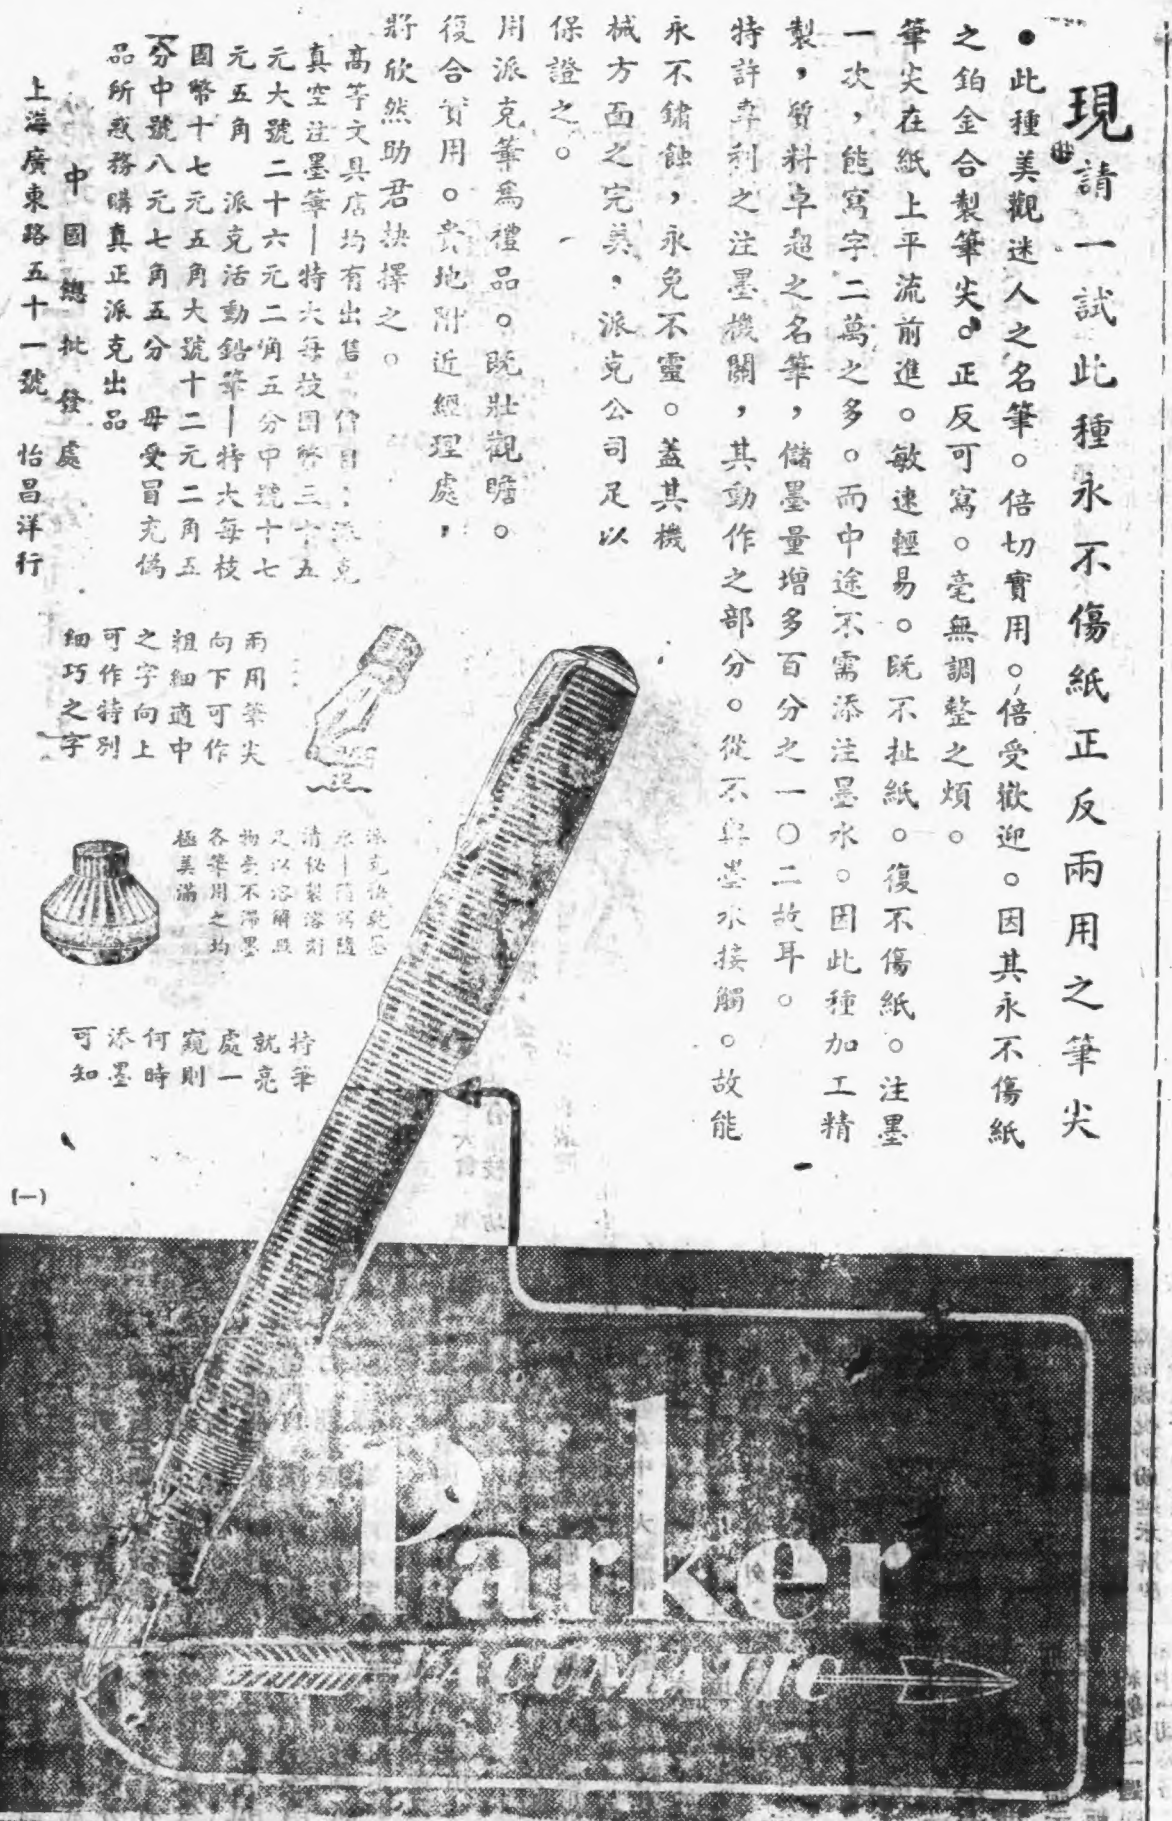 現請一試此種永不傷紙正反兩用之筆尖
●此種美觀迷人之名筆。倍切實用。倍受歡迎。因其永不傷紙
之鉑金合製筆尖。正反可寫。毫無調整之煩。
筆尖在紙上平流前進。敏速輕易。既不扯紙。復不傷紙。注墨
一次，能寫字二萬之多。而中途不需添注墨水。因此種加工精
製，質料卓超之名筆，儲墨量增多百分之一〇二故耳。
特許專利之注墨機關，其動作之部分。從不與墨水接觸。故能
永不鏽蝕，永免不靈。蓋其機
械方面之完美，派克公司足以
保證之。
用派克筆爲禮品。既壯觀瞻。
復合實用。貴地附近經理處，
將欣然助君抉擇之。
高等文具店均有出售 價目：派克
真空注墨筆—特大每枝國幣三十五
元大號二十六元二角五分中號十七
元五角 派克活動鉛筆—特大每枝
國幣十七元五角大號十二元二角五
分中號八元七角五分 毋受冒充偽
品所惑務購真正派克出品
中國總批發處
上海廣東路五十一號 怡昌洋行
兩用筆尖
向下可作
粗細適中
之字向上
可作特別
細巧之字
派克快乾墨
水—隨寫隨
清秘製溶劑
足以溶解渣
物毫不滯墨
各筆用之均
極美滿
持筆
就亮
處一
窺則
何時
添墨
可知
(一)
Parker
VACUMATIC